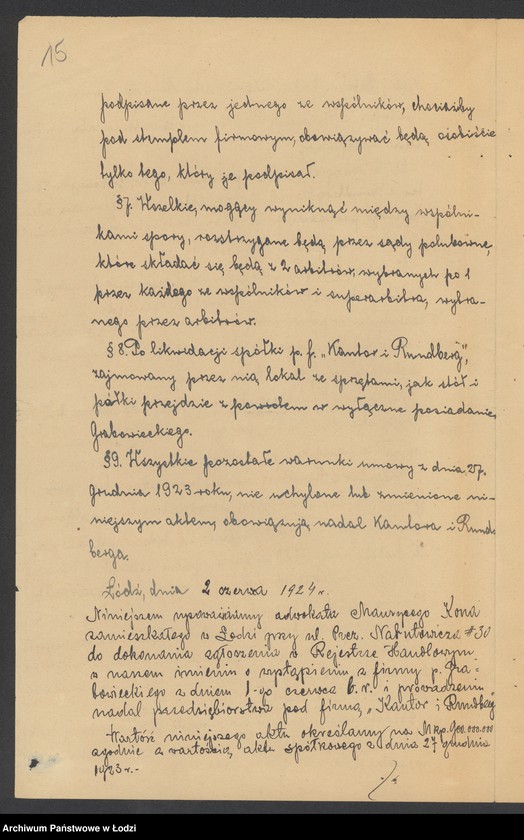 15
podpisane przez jednego ze wspólników, chociażby
pod stemplem firmowym, obowiązywać będą osobiście
tylko tego, który je podpisał.
§7. Wszelkie, mogący wyniknąć między wspólni-
kami spory, rozstrzygane będą przez sądy polubowne,
które składać się będą z 2 arbitrów, wybranych po 1
przez każdego ze wspólników i superarbitra, wybra-
nego przez arbitrów.
§ 8. Po likwidacji spółki p. f. „Kantor i Rundberg",
zajmowany przez nią lokal ze sprzętami, jak stół i
półki przejdzie z powrotem w wyłączne posiadanie
Grabowieckiego.
§9. Wszystkie pozostałe warunki umowy z dnia 27.
grudnia 1923 roku, nie uchylone lub zmienione ni-
niejszym aktem, obowiązują nadal Kantora i Rund-
berga.
Łódź, dnia 2 czerwca 1924 r.
Niniejszem upoważniamy adwokata Maurycego Kona
zamieszkałego w Łodzi przy ul. Prez. Narutowicza #30
do dokonania zgłoszenia w Rejestrze Handlowym
w naszem imieniu o wystąpieniu z firmy p. Gra-
bowieckiego z dniem 1-go czerwca b. r. i prowadzeniu
nadal przedsiębiorstwa pod firmą „Kantor i Rundberg"
Wartość niniejszego aktu określamy na Mkp. 900.000.000
zgodnie z wartością aktu spółkowego z dnia 27 grudnia
1923 r.-
Archiwum Państwowe w Łodzi